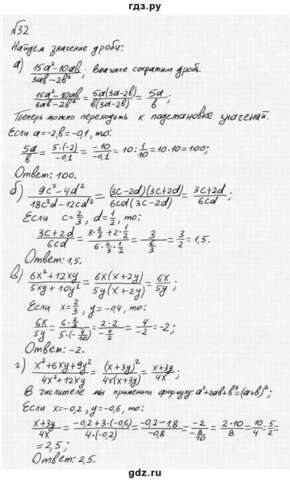 гдз.ру
№32
Найдем значение дроби:
а) (15a²-10ab)/(3ab-2b²). Вначале сократим дробь.
(15a²-10ab)/(3ab-2b²) = 5a(3a-2b)/b(3a-2b) = 5a/b;
Теперь можно переходить к подстановке значений.
Если a=-2, b=-0,1, то:
5a/b = 5·(-2)/-0,1 = -10/-0,1 = 10:1/10 = 10·10=100;
Ответ: 100.
б) (9c²-4d²)/(18c²d-12cd²) = (3c-2d)(3c+2d)/6cd(3c-2d) = (3c+2d)/6cd;
Если c=2/3, d=1/2, то:
(3c+2d)/6cd = (3·2/3+2·1/2)/(6·2/3·1/2) = 3/(6/3) = 3/2 = 1,5.
Ответ: 1,5.
в) (6x²+12xy)/(5xy+10y²) = 6x(x+2y)/5y(x+2y) = 6x/5y;
Если x=2/3, y=-0,4, то:
6x/5y = (6·2/3)/(5·(-4/10)) = 2·2/(-4/2) = 4/-2 = -2;
Ответ: -2.
г) (x²+6xy+9y²)/(4x²+12xy) = (x+3y)²/4x(x+3y) = (x+3y)/4x;
В числителе мы применили формулу: a²+2ab+b²=(a+b)²;
Если x=-0,2, y=-0,6, то:
(x+3y)/4x = (-0,2+3·(-0,6))/(4·(-0,2)) = (-0,2-1,8)/-0,8 = -2/(-8/10) = 2·10/8 = 10/4 = 5/2
=2,5;
Ответ: 2,5.
gdz.ru